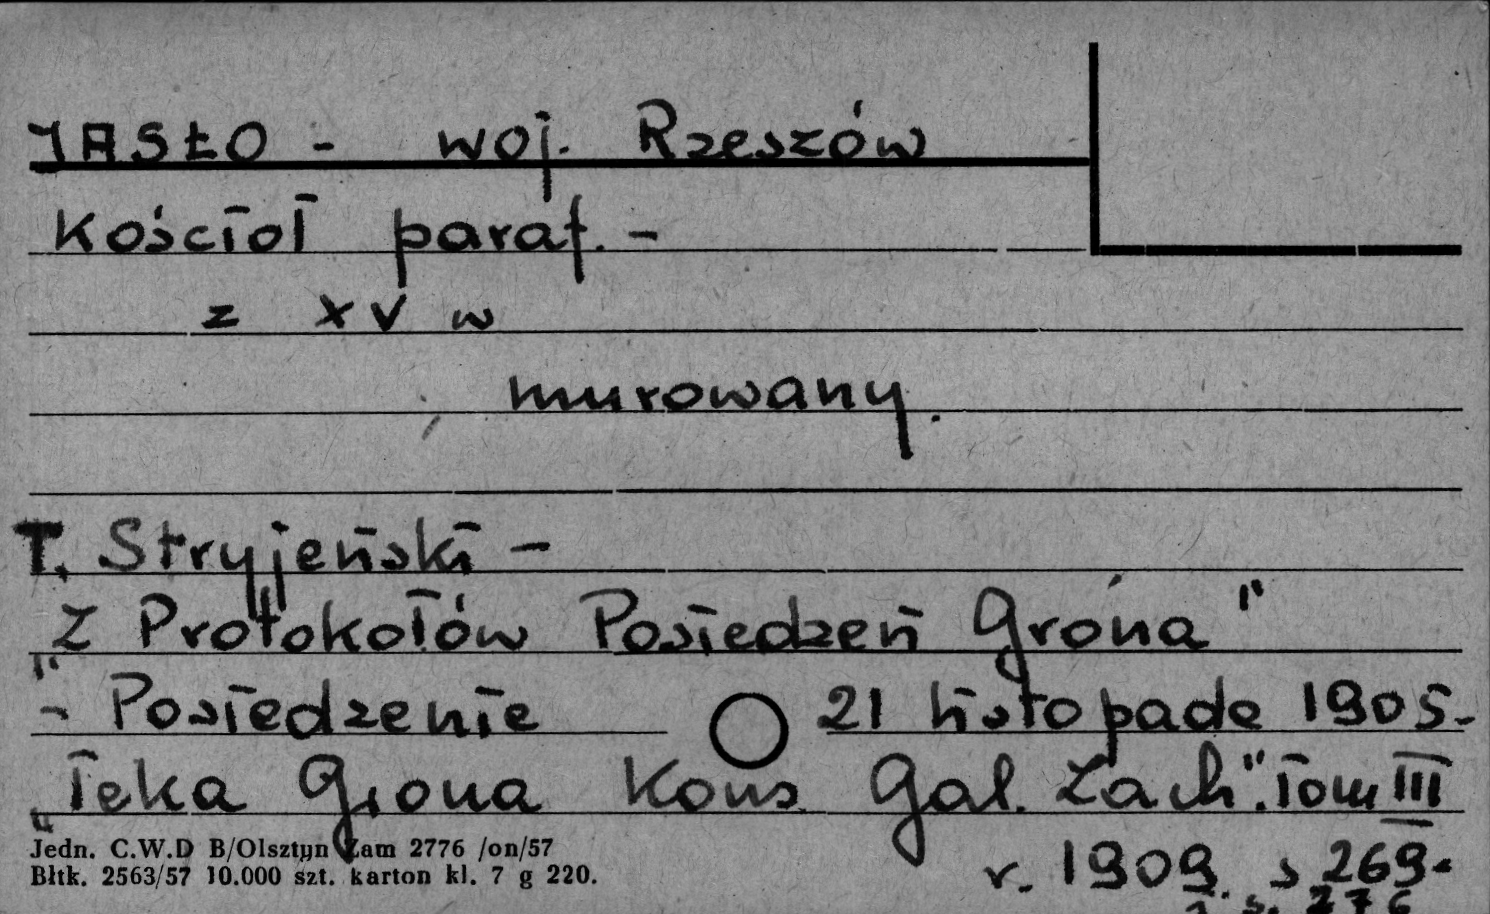 JASŁO - woj. Rzeszów
Kościoł paraf. -
z XV w
murowany.
T. Stryjeński -
"Z Protokołów Posiedzeń Grona"
- Posiedzenie 21 listopada 1905-
"Teka Grona Kons Gal. Zach". Tom III
Jedn. C.W.D B/Olsztyn Zam 2776 /on/57
Błtk. 2563/57 10.000 szt. karton kl. 7 g 220.
r. 1909. s 269-
s. 276